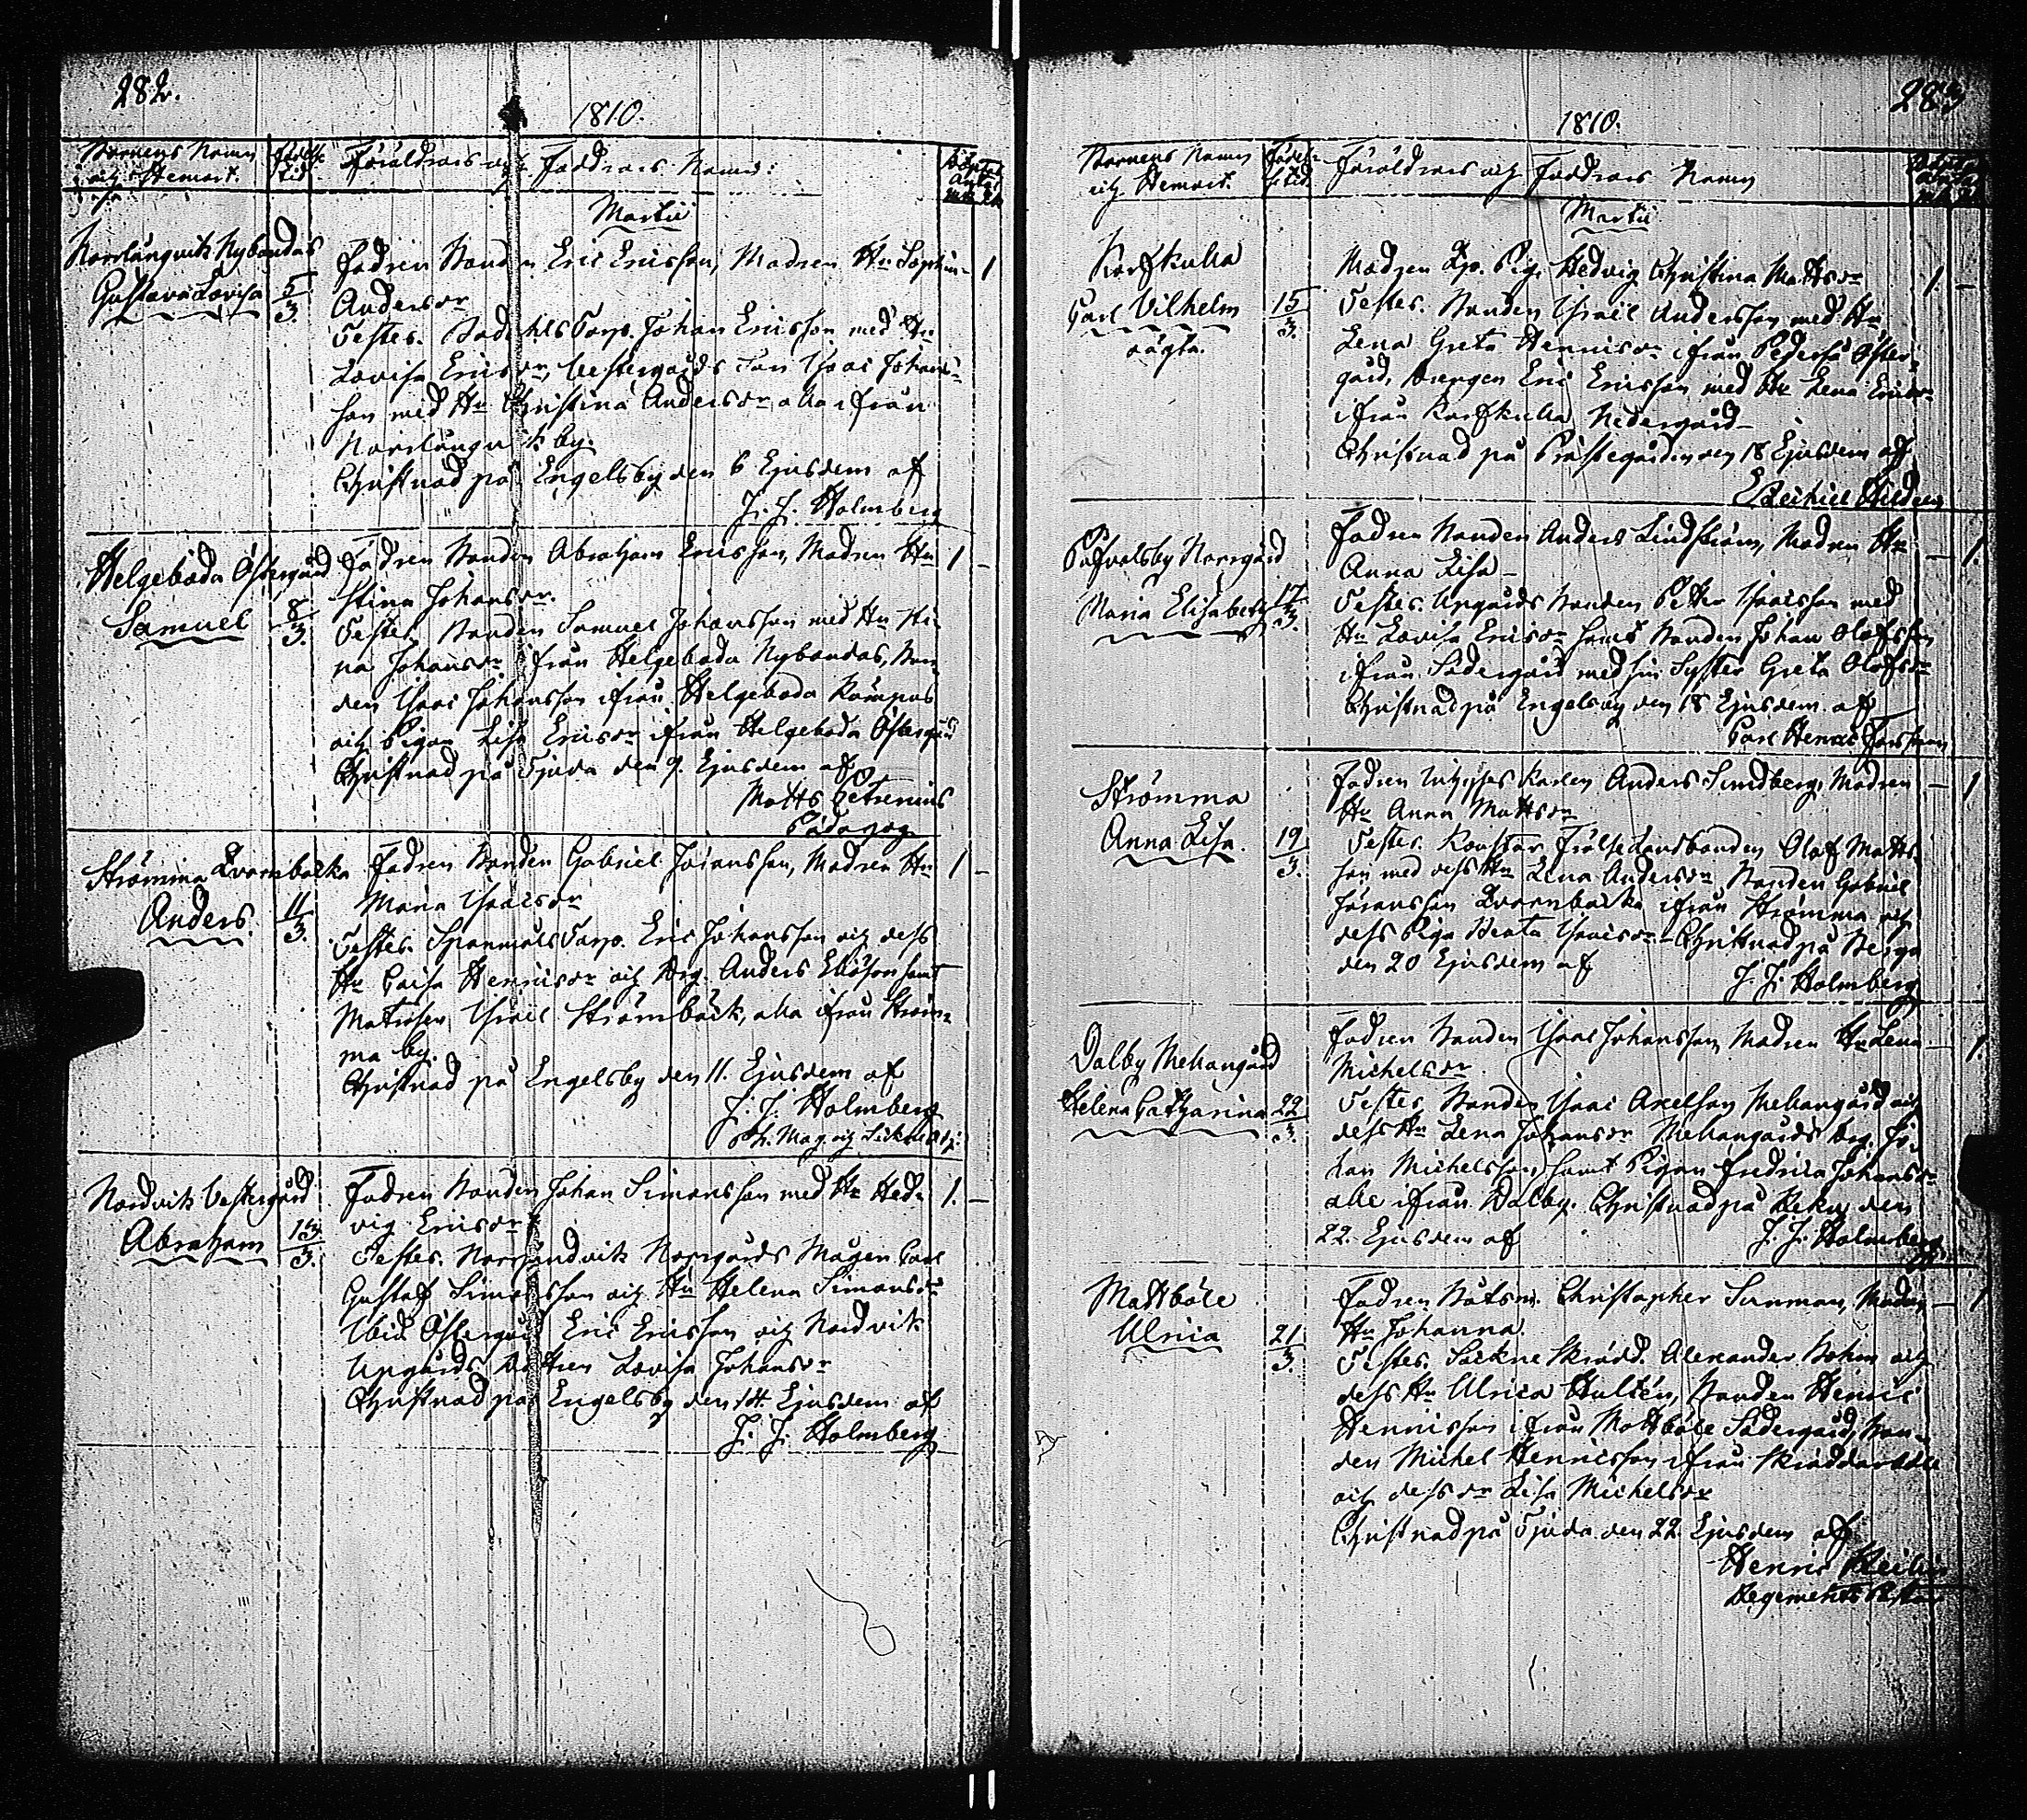 282.
1810.
Barnens Namn
och Hemort.
Födelse
tid.
Föräldrars och Faddrars Namn:
Martii
Norrlångvik Nybondas
Gustava Lovisa
5/3.
Fadren Bonden Eric Ericsson, Modren Hu Sophia
Andersdr
Testes. Torp. Johan Ericsson med Hu
Lovisa Ericsdr, Vestergårds Isaac Johans-
son med Hu Christina Andersdr alla ifrån
Norrlångvik by.
Christnad på Engelsby den 6 Ejusdem af
J. J. Holmberg
1
Helgeboda Östergård
Samuel
8/3.
Fadren Bonden Abraham Ericsson, Modren Hu
Stina Johansdr.
Testes. Bonden Samuel Johansson med Hu Sti-
na Johansdr ifrån Helgeboda Nybondas, Bon-
den Isaac Johansson ifrån Helgeboda Kämpas
och Pigan Lisa Ericsdr ifrån Helgeboda Östergård
Christnad på Tjuda den 9. Ejusdem af
Matts Petrenius
Pädagog
1 –
Strömma Qvarnbacka
Anders.
11/3.
Fadren Bonden Gabriel Göransson, Modren Hu
Maria Isaacsdr
Testes. Spanmåls Torp. Eric Johansson och dess
Hu Caisa Henricsdr och Drg. Anders Eliæson samt
Matrosen Israel Strömbäck, alla ifrån Ström-
ma by.
Christnad på Engelsby den 11. Ejusdem af
J. J. Holmberg
1 –
Nordvik Vestergård
Abraham
13/3.
Fadren Bonden Johan Simonsson med Hu Hed-
vig Ericsdr
Testes. Norrsundvik Norrgårds Mågen Carl
Gustaf Simonsson och Hu Helena Simonsdr
Ibid. Östergård Eric Ericsson och Nordvik
Upgårds Lovisa Johansdr
Christnad på Engelsby den 14. Ejusdem af
J. J. Holmberg
1. –
283
1810.
Barnens Namn
och Hemort.
Födel-
se tid.
Föräldrars och Faddrars Namn
Martii
Korfkulla
Carl Vilhelm
oägta.
15/3.
Modren Pig. Hedvig Christina Mattsdr
Testes. Bonden Israel Andersson med Hu
Lena Greta Henricsdr ifrån Pederså Öster-
gård, Drengen Eric Ericsson med Hu Lena Ericsdr
ifrån Korfkulla Nedergård
Christnad på Prästegården den 18 Ejusdem af
Ezechiel Hildeen
1. –
Påfvalsby Norrgård
Maria Elisabeth
17/3.
Fadren Bonden Anders Lindström, Modren Hu
Anna Lisa –
Testes. Upgårds Bonden Petter Isaacsson med
Hu Lovisa Ericsdr samt Bonden Johan Olofsson
ifrån Södergård med sin Syster Greta Olofsdr
Christnad på Engelsby den 18 Ejusdem af
Carl Henric Forsman
– 1.
Strömma
Anna Lisa.
19/3.
Fadren Inhyses Karlen Anders Sundberg, Modren
Hu Anna Mattsdr
Testes. Frälse Landbonden Olof Matts-
son med dess Hu Lena Andersdr, Bonden Gabriel
Göransson Qvarnbacka ifrån Strömma och
dess Piga Beata Isaacsdr – Christnad på Berga
den 20 Ejusdem af
J. J. Holmberg
– 1
Dalby Mellangård
Helena Catharina
22/3.
Fadren Bonden Isaac Johansson, Modren Hu Lena
Michelsdr
Testes. Bonden Isaac Axelsson Mellangård och
dess Hu Lena Johansdr Mellangårds Drg. Jo-
han Michelsson, samt Pigan Fredrica Johansdr
alle ifrån Dalby. Christnad på Reku den
22. Ejusdem af
J. J. Holmberg
– 1.
Mattböle
Ulrica
21/3.
Fadren Båtsm. Christopher Sunman, Modren
Hu Johanna.
Testes. Sockne Skrädd. Alexander Bohm och
dess Hu Ulrica Hultén, Bonden Henric
Henricsson ifrån Mattböle Södergård, Bon-
den Michel Henricsson ifrån Skräddarböle
och dess dr Lisa Michelsdr
Christnad på Tjuda den 22 Ejusdem af
Henric
Regements Pastor
– 1